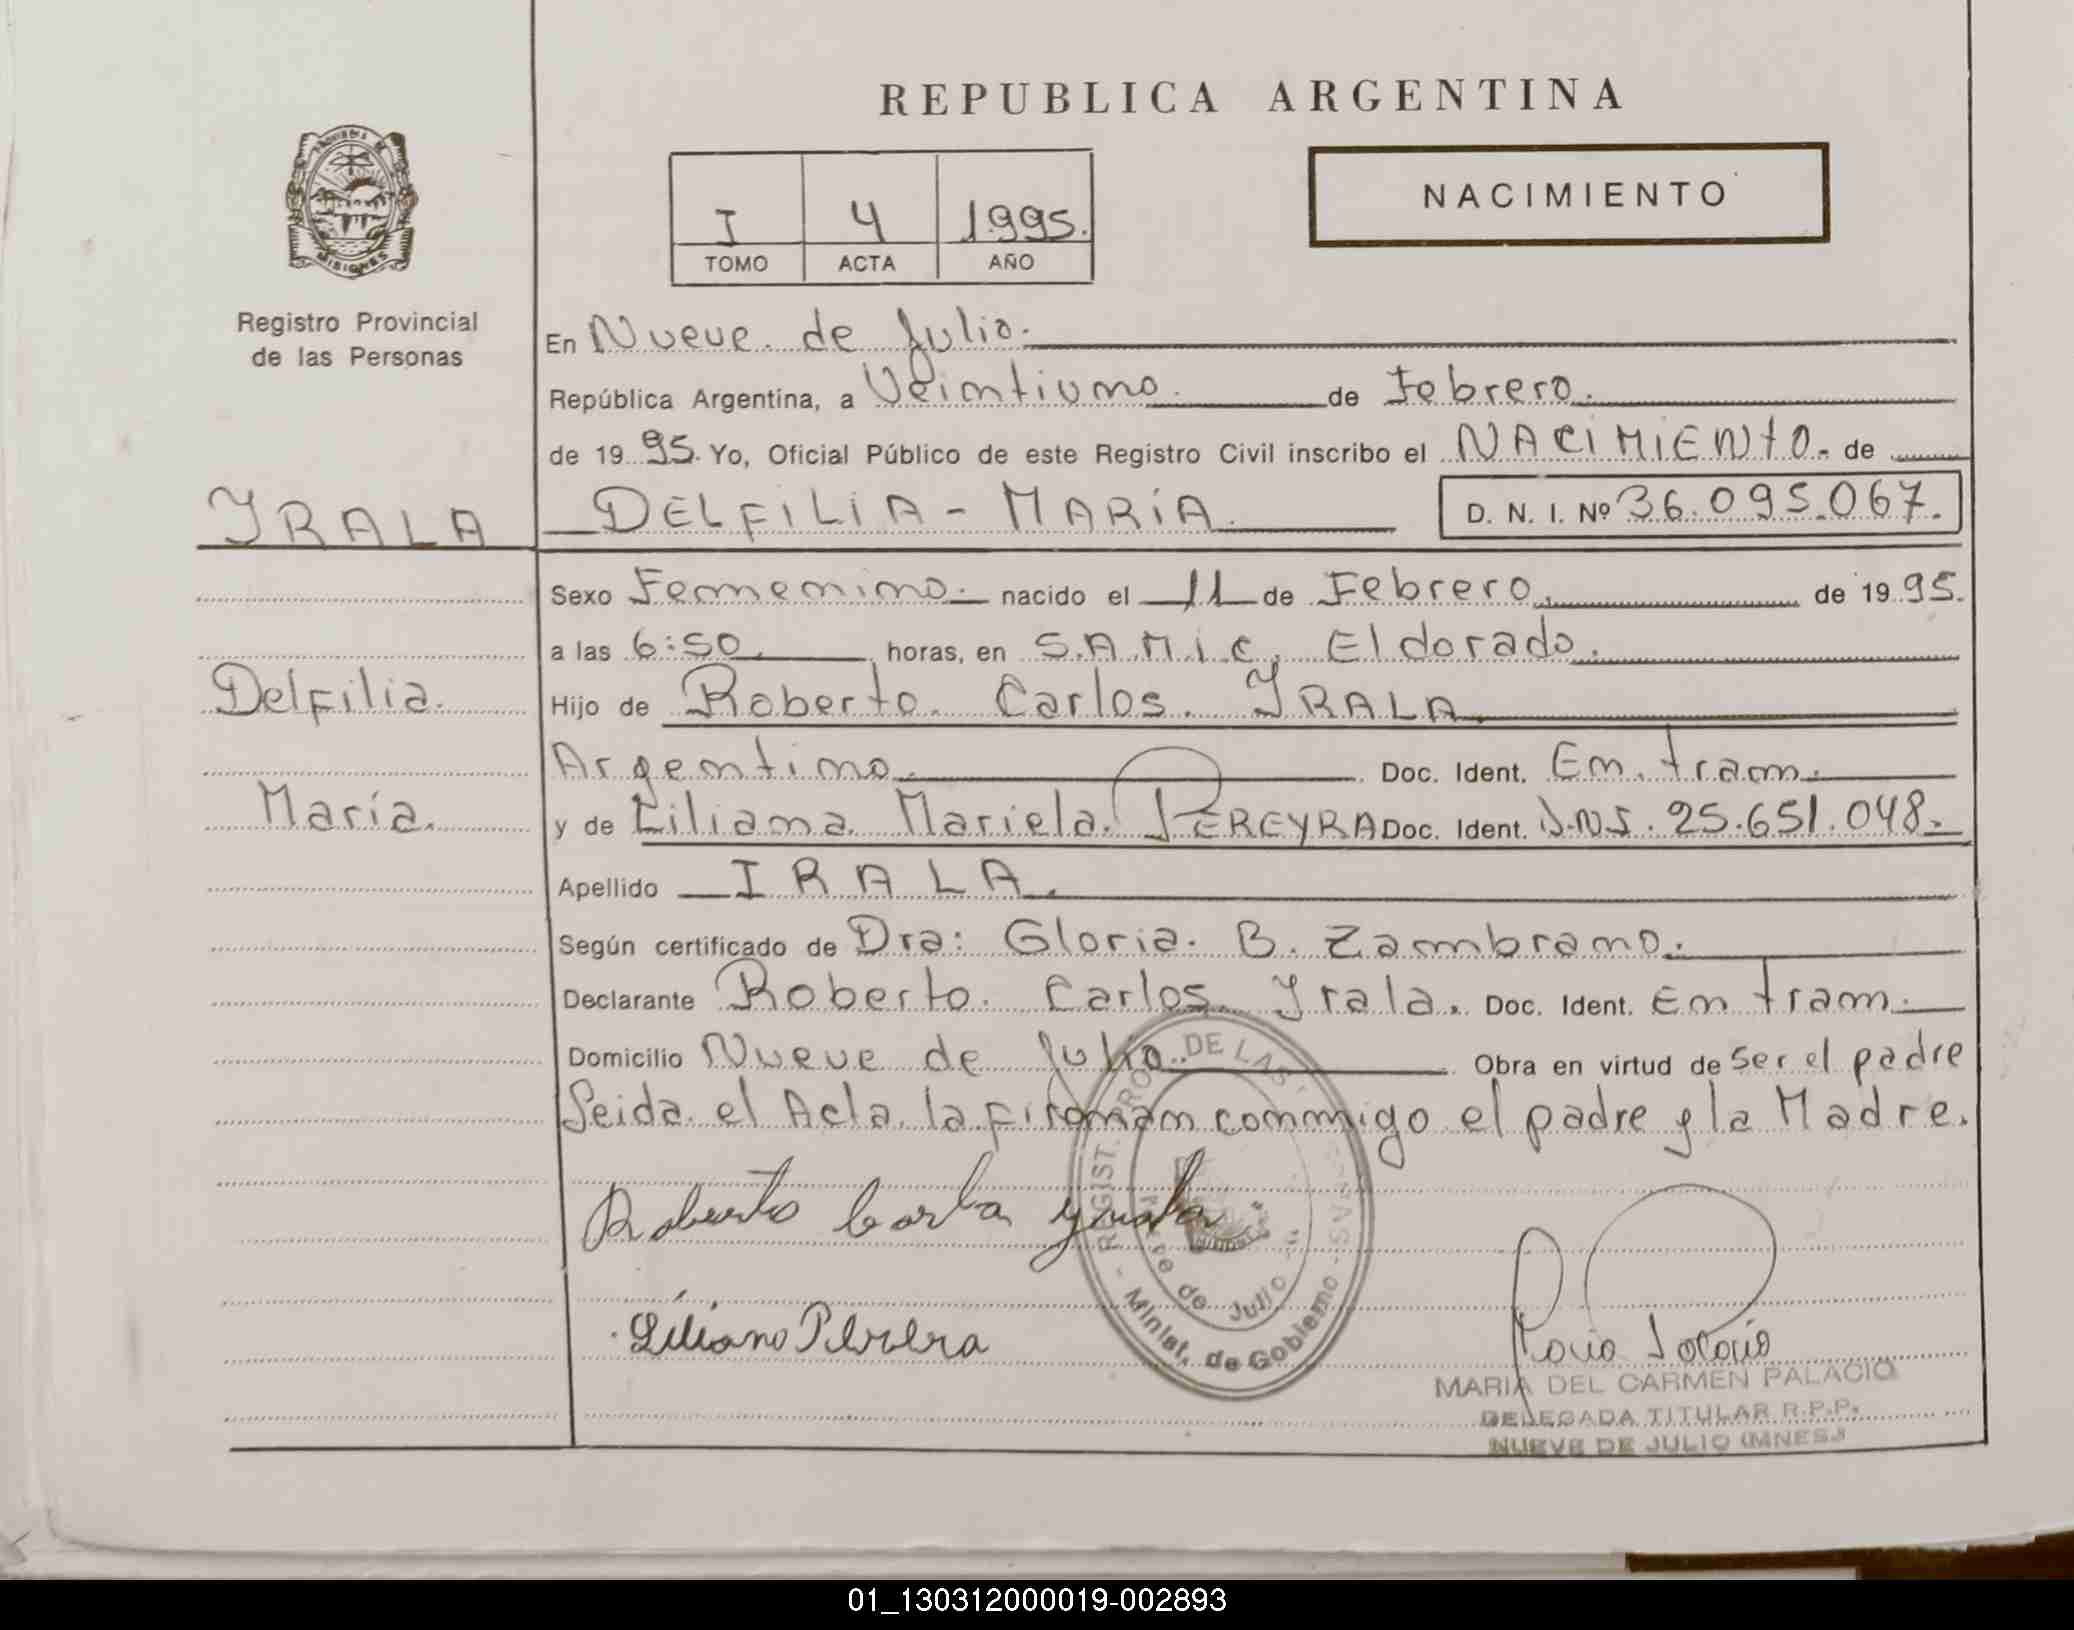 REPUBLICA ARGENTINA
PROVINCIA DE
MISIONES
Registro Provincial
de las Personas
NACIMIENTO
I 4 1995.
TOMO ACTA AÑO
En Nueve de Julio.
República Argentina, a Veintiuno. de Febrero.
de 19 95. Yo, Oficial Público de este Registro Civil inscribo el NACIMIENTO. de
IRALA DELFILIA - MARÍA. D. N. I. Nº 36.095.067.
Sexo Femenino. nacido el 11 de Febrero. de 19 95.
a las 6:50. horas, en S.A.M.i.C, Eldorado.
Delfilia. Hijo de Roberto. Carlos. IRALA
Argentino. Doc. Ident. En. tram.
María. y de Liliana Mariela. PEREYRA Doc. Ident. D.N.I. 25.651.048.
Apellido IRALA.
Según certificado de Dra: Gloria. B. Zambrano.
Declarante Roberto. Carlos. Irala. Doc. Ident. En tram.
Domicilio Nueve de Julio. Obra en virtud de Ser el padre
Leida el Acta la firman conmigo el padre y la Madre.
REGIST. PRO. DE LAS
Nueve de Julio
- Minist. de Gobierno -
Roberto Carlo yrala
Liliana Pereira
MARIA DEL CARMEN PALACIO
DELEGADA TITULAR R.P.P.
NUEVE DE JULIO (MNES.)
01_130312000019-002893